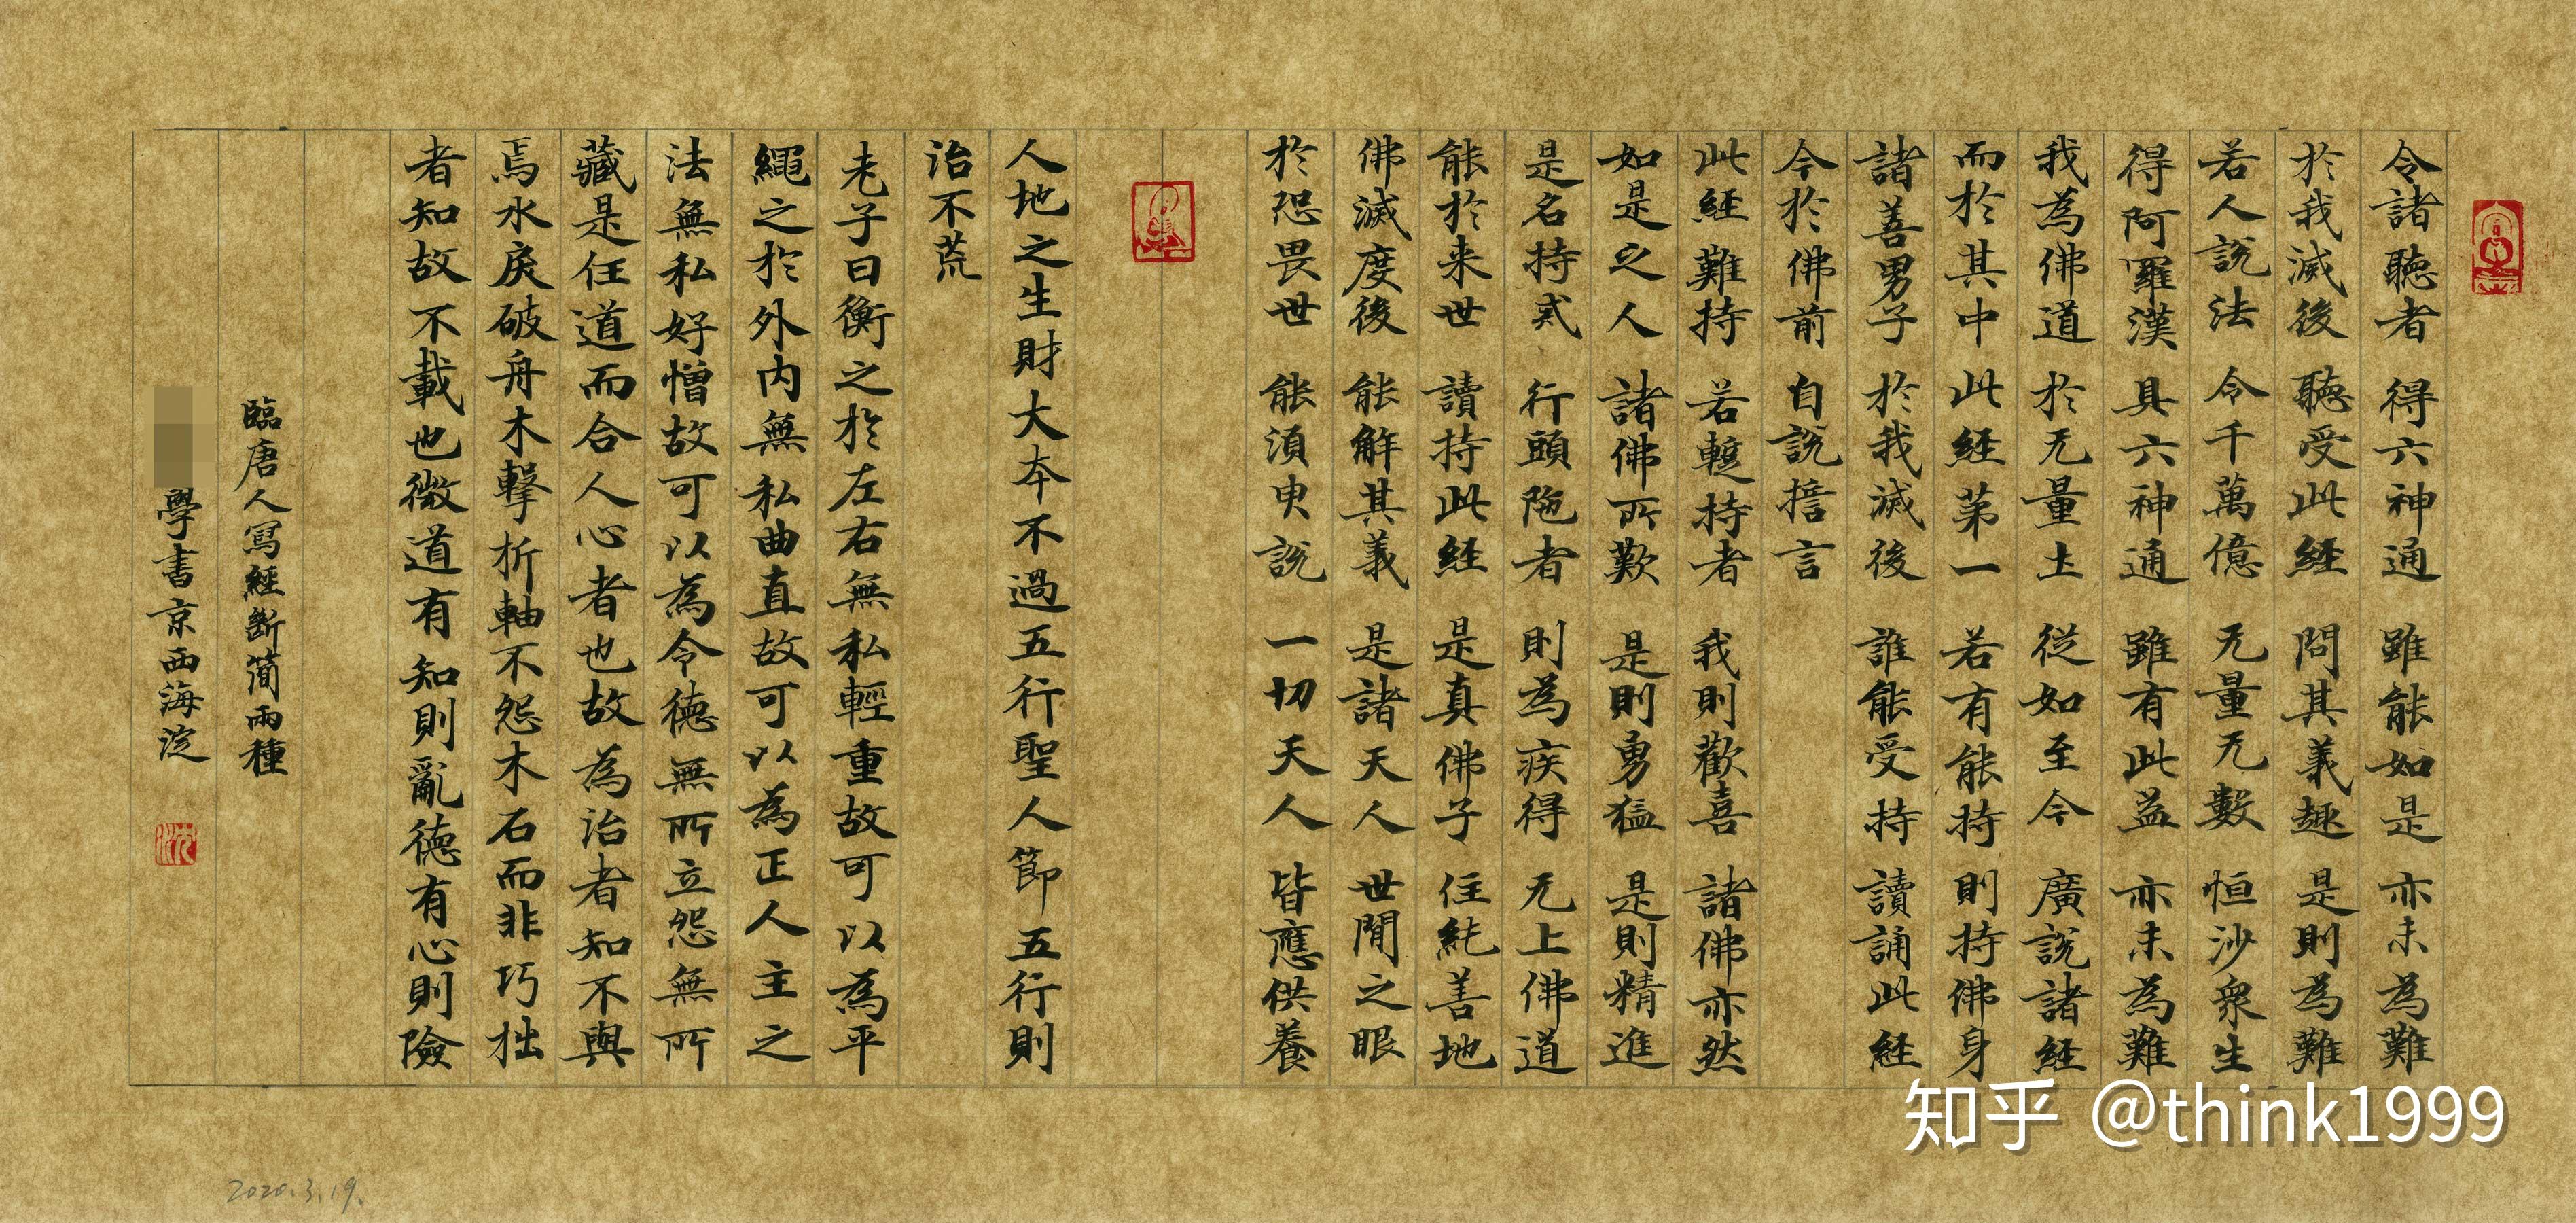 令諸聽者 得六神通 雖能如是 亦未為難
於我滅後 聽受此經 問其義趣 是則為難
若人說法 令千萬億 无量无數 恒沙衆生
得阿羅漢 具六神通 雖有此益 亦未為難
我為佛道 於无量土 從如至今 廣說諸經
而於其中 此經第一 若有能持 則持佛身
諸善男子 於我滅後 誰能受持 讀誦此經
今於佛前 自說誓言
此經難持 若蹔持者 我則歡喜 諸佛亦然
如是之人 諸佛所歎 是則勇猛 是則精進
是名持戒 行頭陁者 則為疾得 无上佛道
能於来世 讀持此經 是真佛子 住純善地
佛滅度後 能解其義 是諸天人 世間之眼
於恐畏世 能須臾說 一切天人 皆應供養
人地之生財大本不過五行聖人節五行則
治不荒
老子曰衡之於左右無私輕重故可以為平
繩之於外内無私曲直故可以為正人主之
法無私好憎故可以為令德無所立怨無所
藏是任道而合人心者也故為治者知不與
焉水戾破舟木擊折軸不怨木石而非巧拙
者知故不載也微道有知則亂德有心則險
臨唐人寫經斷簡兩種
學書京西海淀
2020.3.19.
知乎 @think1999